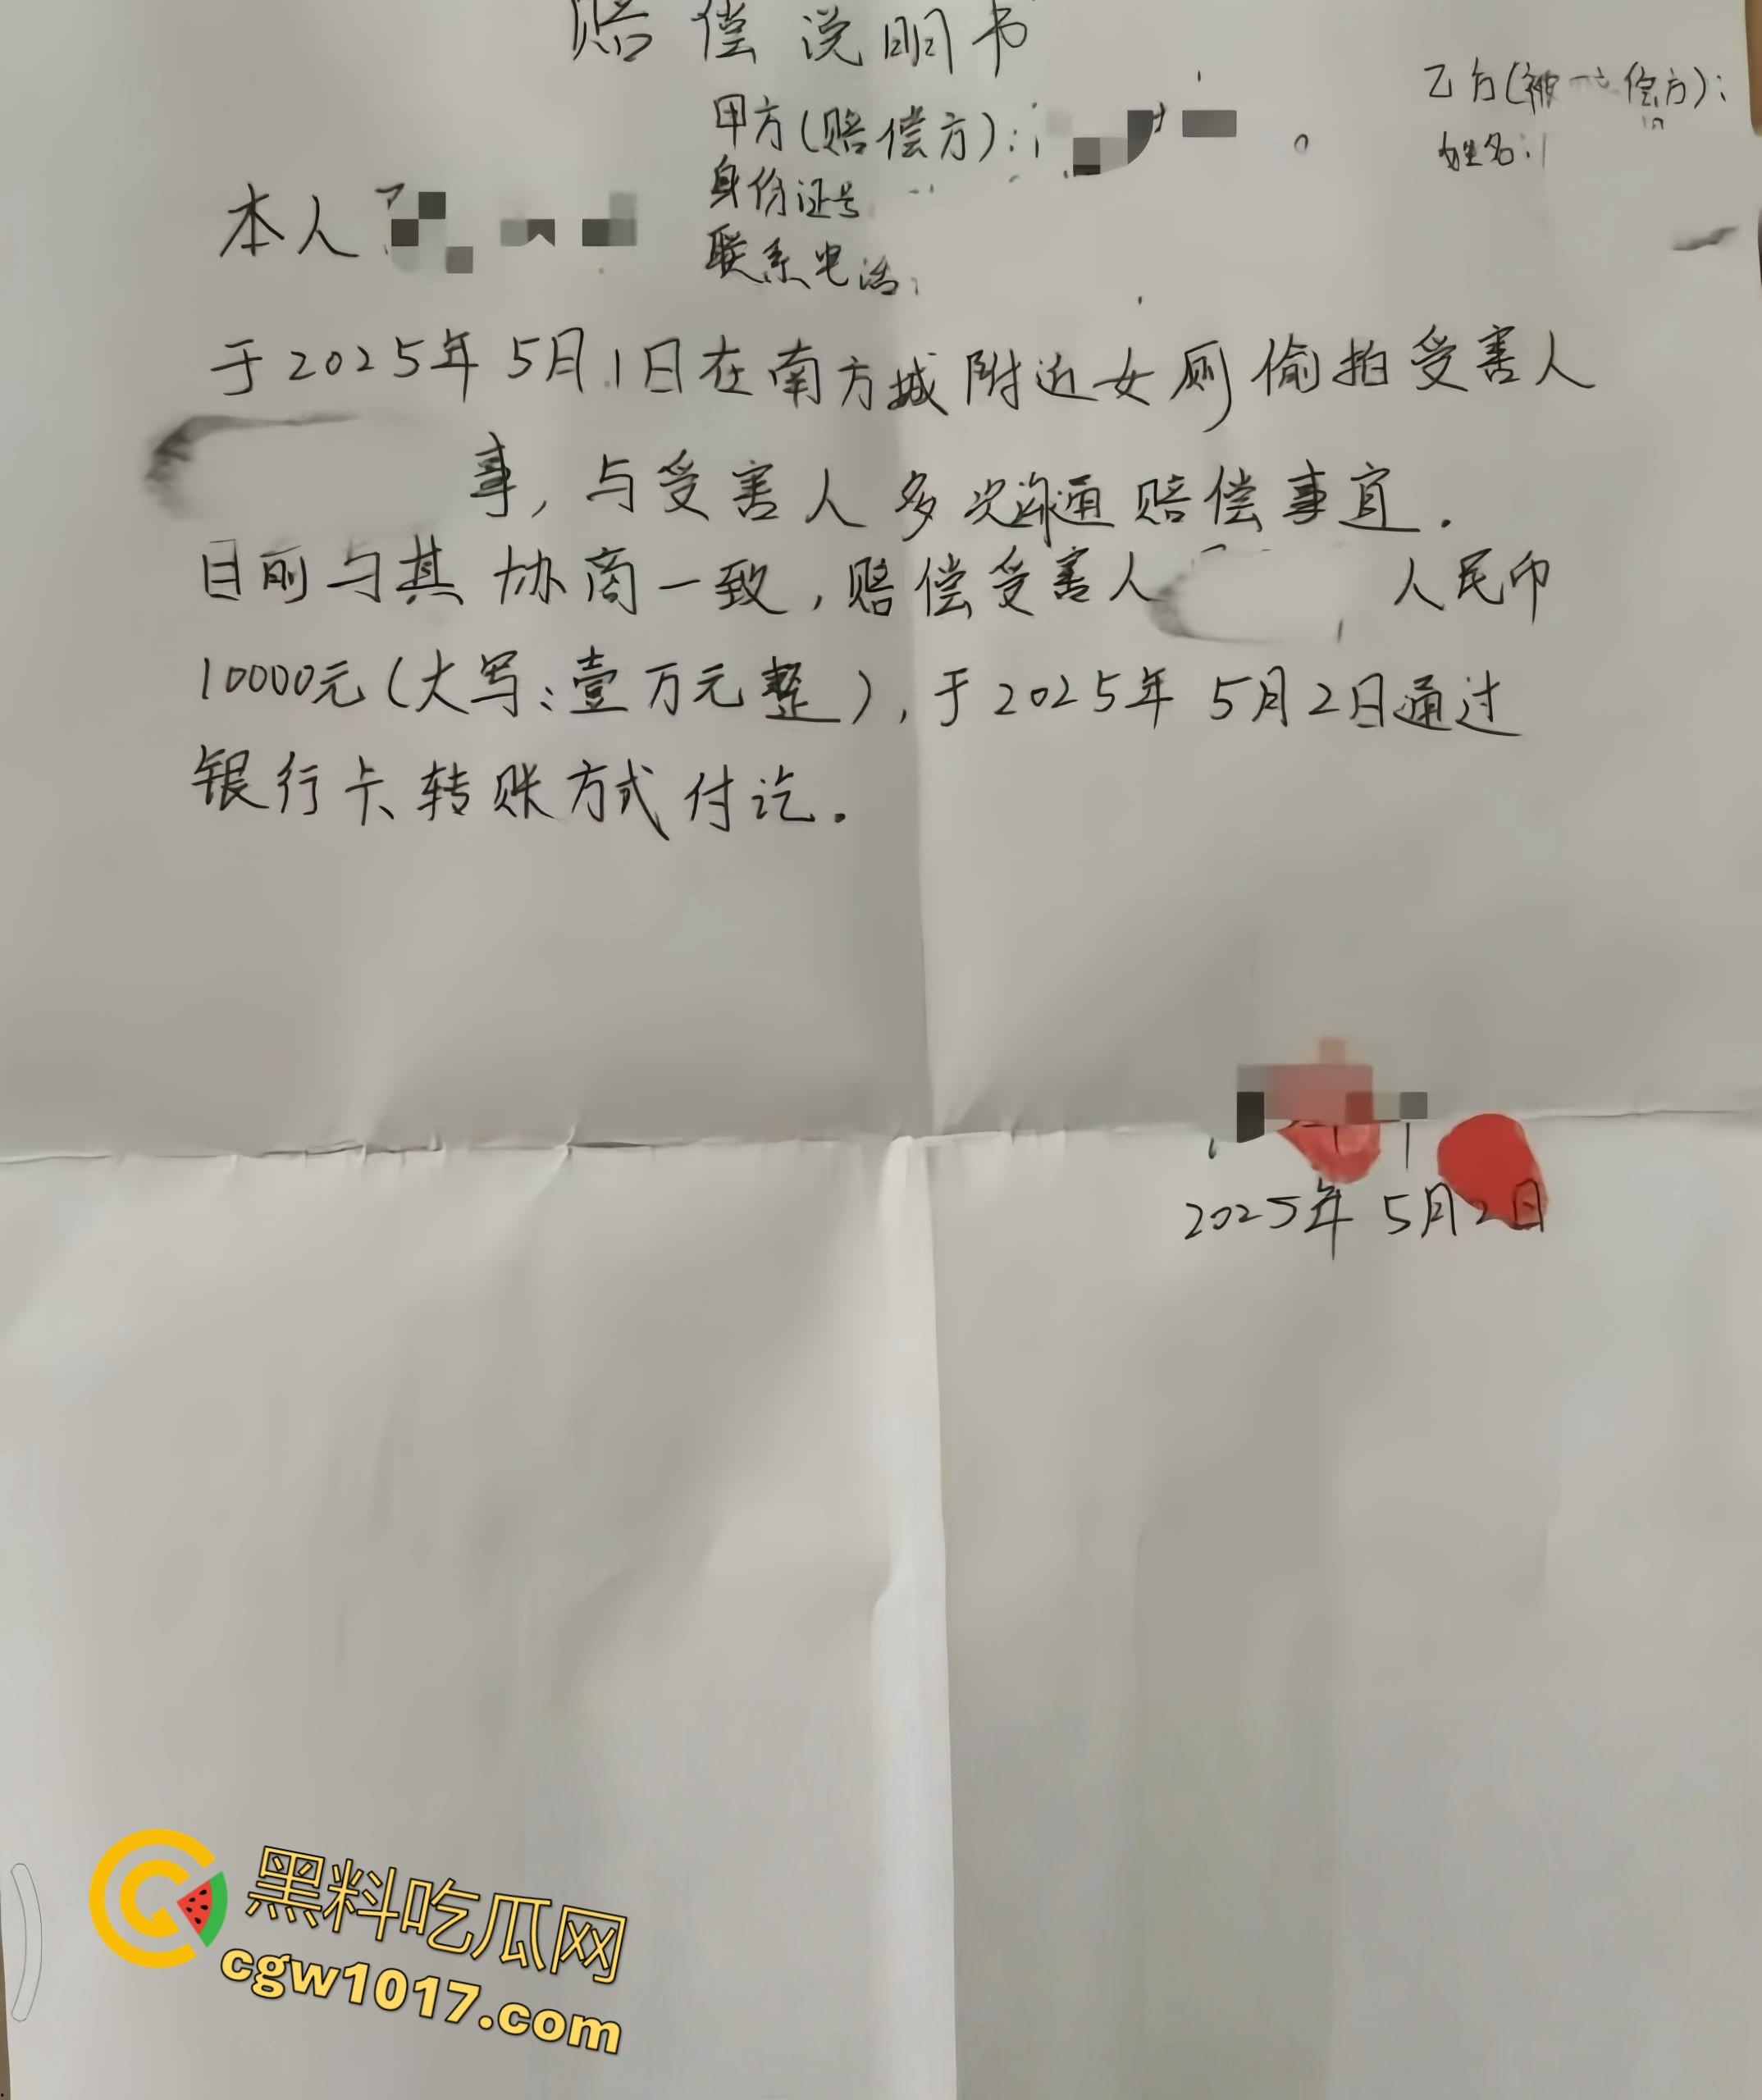 赔偿说明书
甲方(赔偿方):
身份证号
联系电话:
乙方(被 偿方):
姓名:
本人
于2025年5月1日在南方城附近女厕偷拍受害人
事,与受害人多次沟通赔偿事宜.
目前与其协商一致,赔偿受害人 人民币
10000元(大写:壹万元整),于2025年5月2日通过
银行卡转账方式付讫.
2025年5月2日
黑料吃瓜网
cgw1017.com